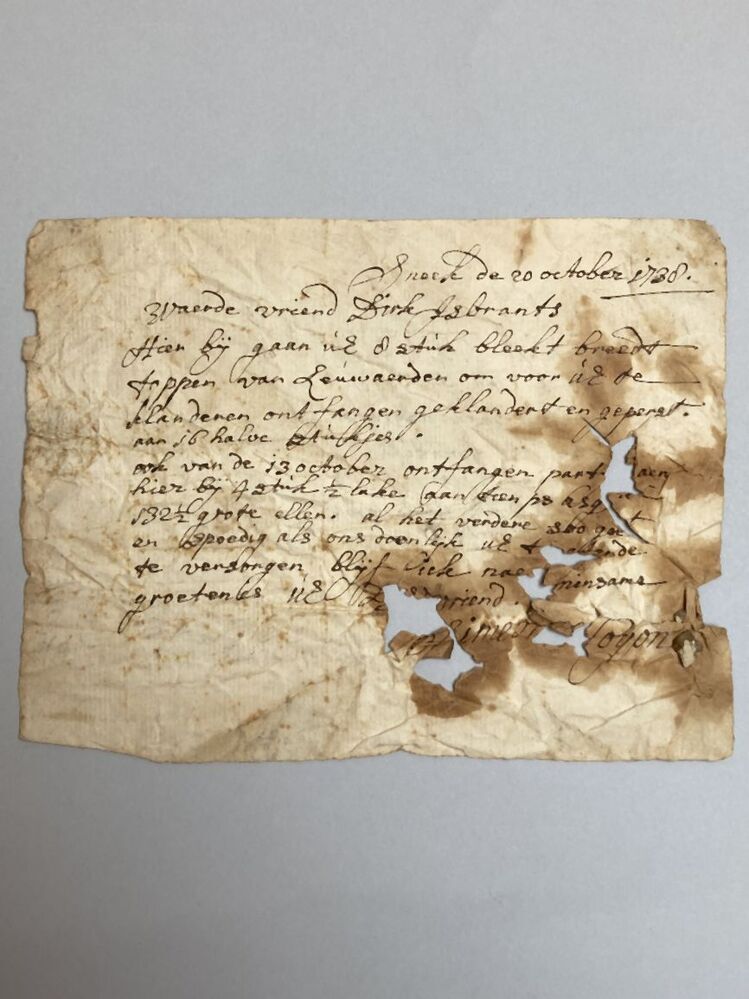 Sneek de 20 october 1738.
Waerde vriend Dirk Isbrants
Hier bij gaan UE 8 stuk bleekt breedt
toppen van Leuwaerden om voor UE te
klanderen ontfangen geklandert en geperst.
aan 16 halve stukjes.
ook van de 13 october ontfangen part
hier bij 4 stuk ½ lake
132½ grote ellen. al het verdere soo goet
en spoedig als ons doenlijk UE
te versorgen blijf Sick nae minsame
groetenis UE vriend.
Simeon Toyon